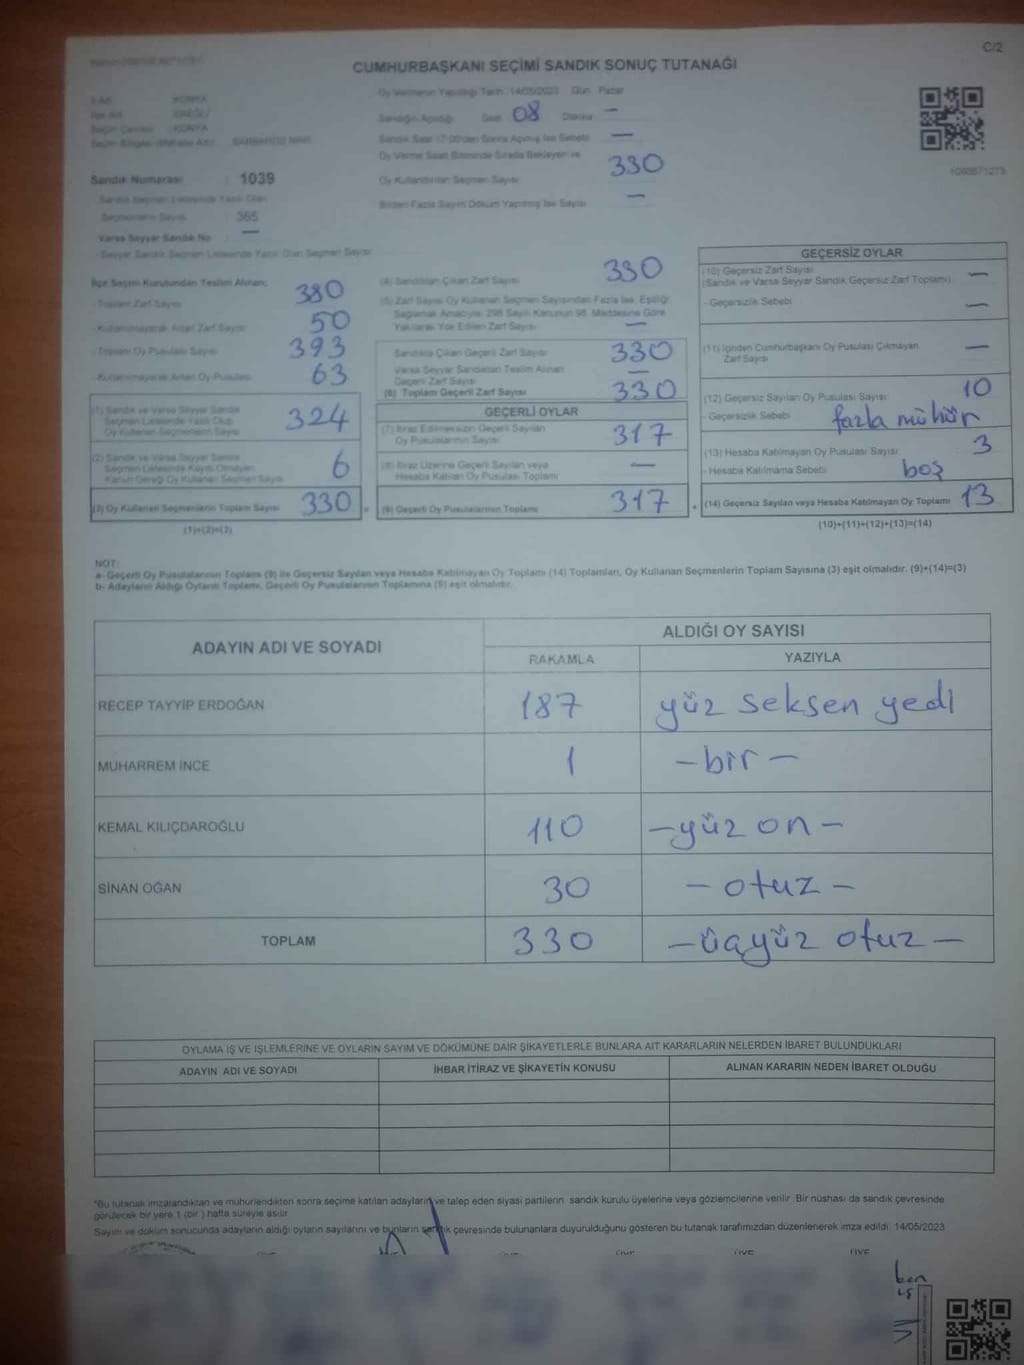 C/2
CUMHURBAŞKANI SEÇİMİ SANDIK SONUÇ TUTANAĞI
Oy Vermenin Yapıldığı Tarih :14/05/2023 Gün Pazar
KONYA
Sandığın Açıldığı Saat 08 Dakika —
KONYA
Sandık Saat 17:00'den Sonra Açılmış İse Sebebi —
Oy Verme Saati Bitiminde Sırada Bekleyen ve
Oy Kullandırılan Seçmen Sayısı 330
1093871273
Sandık Numarası : 1039
Birden Fazla Sayım Döküm Yapılmış İse Sayısı —
Sandık Seçmen Listesinde Yazılı Olan
Seçmenlerin Sayısı : 365
Varsa Seyyar Sandık No : —
- Seyyar Sandık Seçmen Listesinde Yazılı Olan Seçmen Sayısı:
İlçe Seçim Kurulundan Teslim Alınan;
- Toplam Zarf Sayısı 380
- Kullanılmayarak Artan Zarf Sayısı 50
- Toplam Oy Pusulası Sayısı 393
- Kullanılmayarak Artan Oy Pusulası 63
(1) Sandık ve Varsa Seyyar Sandık
Seçmen Listesinde Yazılı Olup
Oy Kullanan Seçmenlerin Sayısı 324
(2) Sandık ve Varsa Seyyar Sandık
Seçmen Listesinde Kaydı Olmayan
Kanun Gereği Oy Kullanan Seçmen Sayısı 6
(3) Oy Kullanan Seçmenlerin Toplam Sayısı 330 =
(1)+(2)=(3)
(4) Sandıktan Çıkan Zarf Sayısı 330
(5) Zarf Sayısı Oy Kullanan Seçmen Sayısından Fazla İse, Eşitliği
Sağlamak Amacıyla, 298 Sayılı Kanunun 98. Maddesine Göre
Yakılarak Yok Edilen Zarf Sayısı —
Sandıkta Çıkan Geçerli Zarf Sayısı 330
Varsa Seyyar Sandıktan Teslim Alınan
Geçerli Zarf Sayısı —
(6) Toplam Geçerli Zarf Sayısı 330
GEÇERLİ OYLAR
(7) İtiraz Edilmeksizin Geçerli Sayılan
Oy Pusulalarının Sayısı 317
(8) İtiraz Üzerine Geçerli Sayılan veya
Hesaba Katılan Oy Pusulası Toplamı —
(9) Geçerli Oy Pusulalarının Toplamı 317 +
GEÇERSİZ OYLAR
(10) Geçersiz Zarf Sayısı —
(Sandık ve Varsa Seyyar Sandık Geçersiz Zarf Toplamı)
- Geçersizlik Sebebi —
(11) İçinden Cumhurbaşkanı Oy Pusulası Çıkmayan
Zarf Sayısı —
(12) Geçersiz Sayılan Oy Pusulası Sayısı 10
- Geçersizlik Sebebi fazla mühür
(13) Hesaba Katılmayan Oy Pusulası Sayısı 3
- Hesaba Katılmama Sebebi boş
(14) Geçersiz Sayılan veya Hesaba Katılmayan Oy Toplamı 13
(10)+(11)+(12)+(13)=(14)
NOT:
a- Geçerli Oy Pusulalarının Toplamı (9) ile Geçersiz Sayılan veya Hesaba Katılmayan Oy Toplamı (14) Toplamları, Oy Kullanan Seçmenlerin Toplam Sayısına (3) eşit olmalıdır. (9)+(14)=(3)
b- Adayların Aldığı Oyların Toplamı, Geçerli Oy Pusulalarının Toplamına (9) eşit olmalıdır.
ADAYIN ADI VE SOYADI
ALDIĞI OY SAYISI
RAKAMLA YAZIYLA
RECEP TAYYİP ERDOĞAN 187 yüz seksen yedi
MUHARREM İNCE 1 -bir-
KEMAL KILIÇDAROĞLU 110 -yüz on-
SİNAN OĞAN 30 -otuz-
TOPLAM 330 -üçyüz otuz-
OYLAMA İŞ VE İŞLEMLERİNE VE OYLARIN SAYIM VE DÖKÜMÜNE DAİR ŞİKAYETLERLE BUNLARA AİT KARARLARIN NELERDEN İBARET BULUNDUKLARI
ADAYIN ADI VE SOYADI İHBAR İTİRAZ VE ŞİKAYETİN KONUSU ALINAN KARARIN NEDEN İBARET OLDUĞU
*Bu tutanak imzalandıktan ve mühürlendikten sonra seçime katılan adayların ve talep eden siyasi partilerin sandık kurulu üyelerine veya gözlemcilerine verilir. Bir nüshası da sandık çevresinde
görülecek bir yere 1 (bir ) hafta süreyle asılır.
Sayım ve döküm sonucunda adayların aldığı oyların sayılarını ve bunların sandık çevresinde bulunanlara duyurulduğunu gösteren bu tutanak tarafımızdan düzenlenerek imza edildi. 14/05/2023